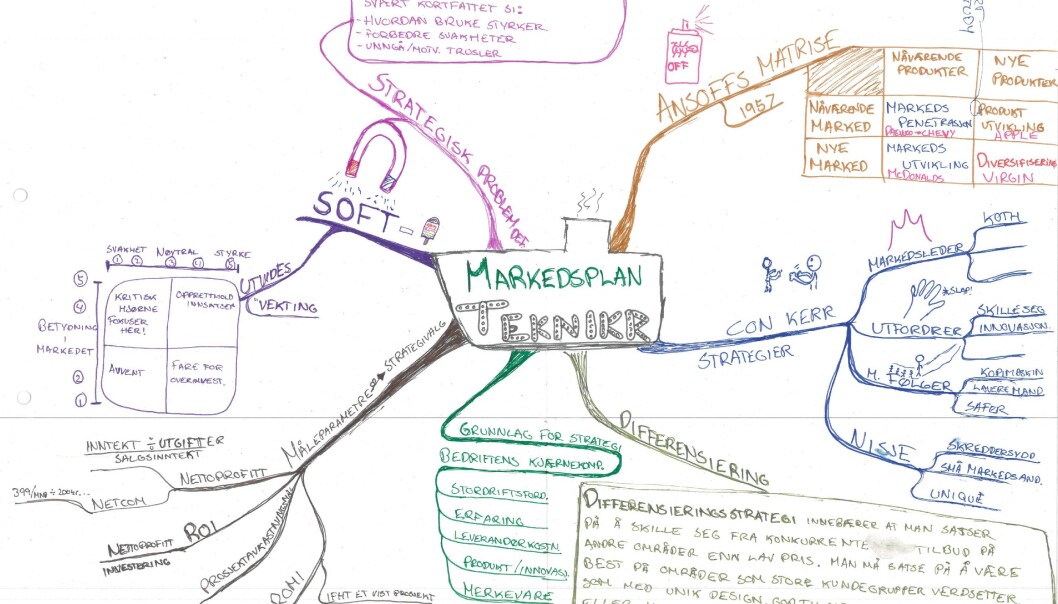 SVÆRT KORTFATTET SI:
- HVORDAN BRUKE STYRKER
- FORBEDRE SVAKHETER
- UNNGÅ/MOTV. TROSLER
STRATEGISK PROBLEMDEF.
OFF
ANSOFFS MATRISE
1957
NÅVÆRENDE
PRODUKTER
NYE
PRODUKTER
NÅVÆRENDE
MARKED
MARKEDS
PENETRASJON
DAEWOO→CHEVY
PRODUKT
UTVIKLING
APPLE
NYE
MARKED
MARKEDS
UTVIKLING
McDONALDS
DIVERSIFISERING
VIRGIN
SOFT -
UTVIDES
VEKTING
SVAKHET NØYTRAL STYRKE
1 2 3 4 5
5
4
BETYDNING
I
MARKEDET
2
1
KRITISK
HJØRNE
FOKUSER
HER!
OPPRETTHOLD
INNSATSEN
AVVENT
FARE FOR
OVERINVEST.
MARKEDSPLAN
TEKNIKR
CON KERR
STRATEGIER
MARKEDSLEDER
KOTH
UTFORDRER
*SLAP!
SKILLE SEG
INNOVASJON
M. FØLGER
KOPIMASKIN
LAVERE MAND
SAFER
NISJE
SKREDDERSYDD
SMÅ MARKEDSAND.
UNIQUE
MÅLEPARAMETRE
STRATEGIVALG
NETTOPROFITT
INNTEKT ÷ UTGIFTER
SALGSINNTEKT
NETCOM
399/MND ÷ 200kr...
ROI
NETTOPROFITT
INVESTERING
ROMI
IFHT ET VIST PROSJEKT
GRUNNLAG FOR STRATEGI
BEDRIFTENS KJÆRNEKOMP.
STORDRIFTSFORD.
ERFARING
LEVERANDØRKOSTN.
PRODUKT/INNOVASJ.
MERKEVARE
DIFFERENSIERING
DIFFERENSIERINGSSTRATEGI INNEBÆRER AT MAN SATSER
PÅ Å SKILLE SEG FRA KONKURRENTE TILBUD PÅ
ANDRE OMRÅDER ENN LAV PRIS. MAN MÅ SATSE PÅ Å VÆRE
BEST PÅ OMRÅDER SOM STORE KUNDEGRUPPER VERDSETTER
SOM MED UNIK DESIGN,